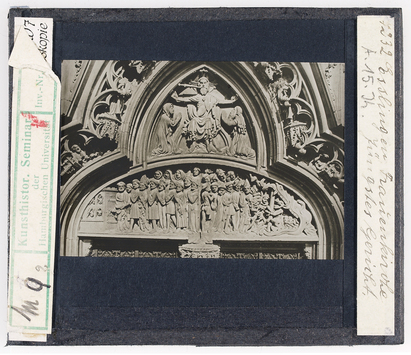 skopie
Kunsthistor. Seminar
der
Hamburgischen Universität
Inv.-Nr.
M 9
1232 Esslingen Frauenkirche
A. 15. Jh.
Jüngstes Gericht.